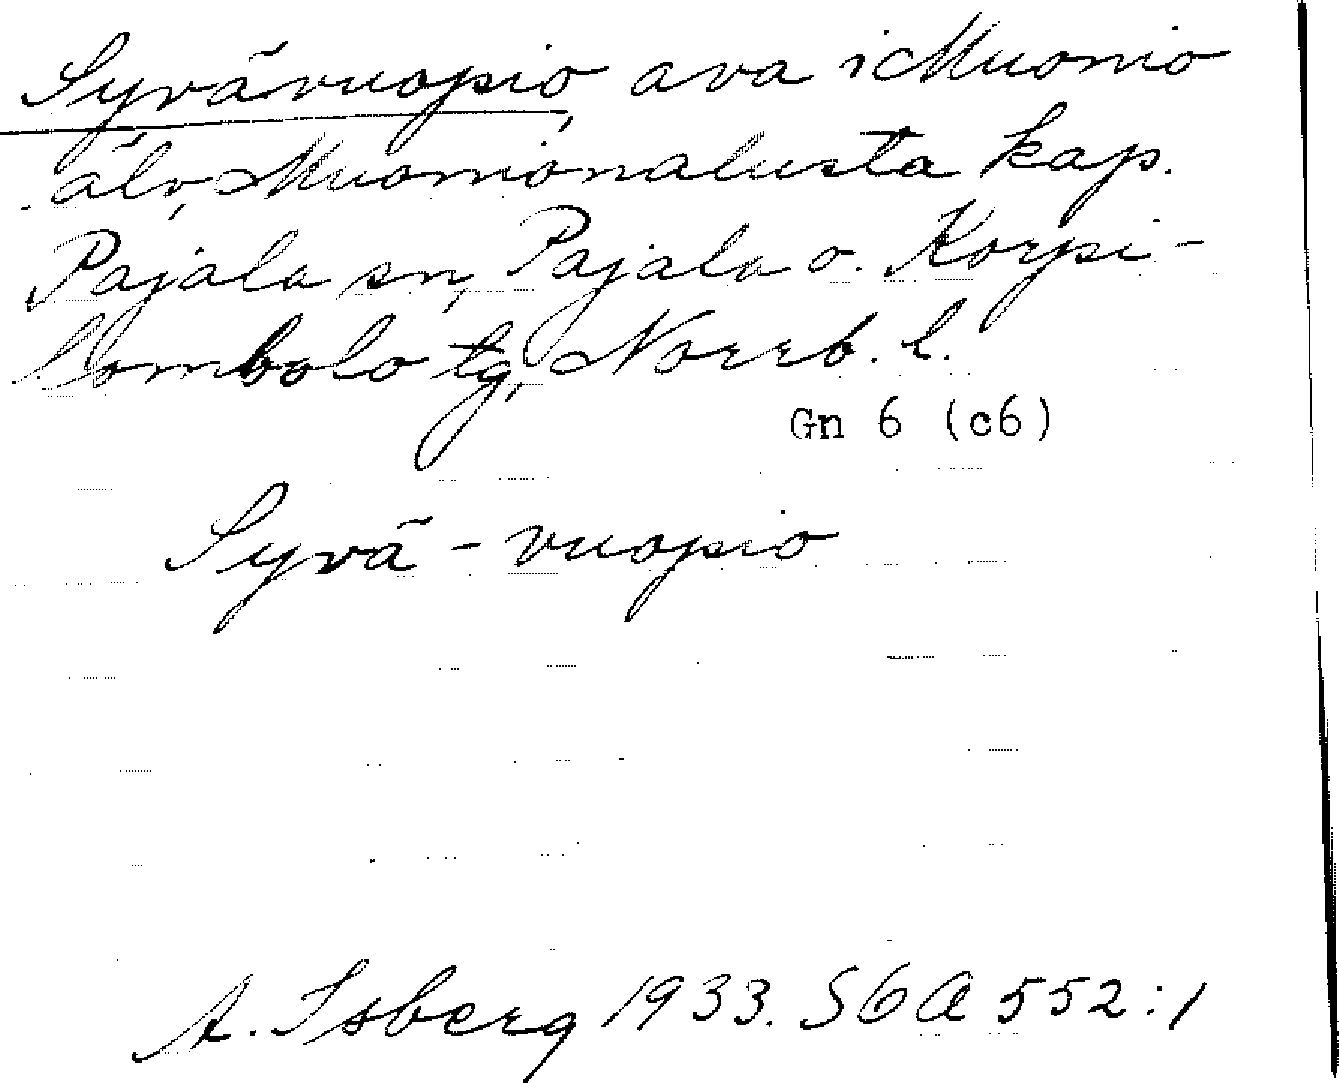 Syvävuopio, ava i Muonio
älv, Muonionalusta kap.
Pajala sn, Pajala o. Korpi-
lombolo tg, Norrb. l.
Gn 6 (c6)
Syvä - vuopio
A. Isberg 1933. SGA 552:1